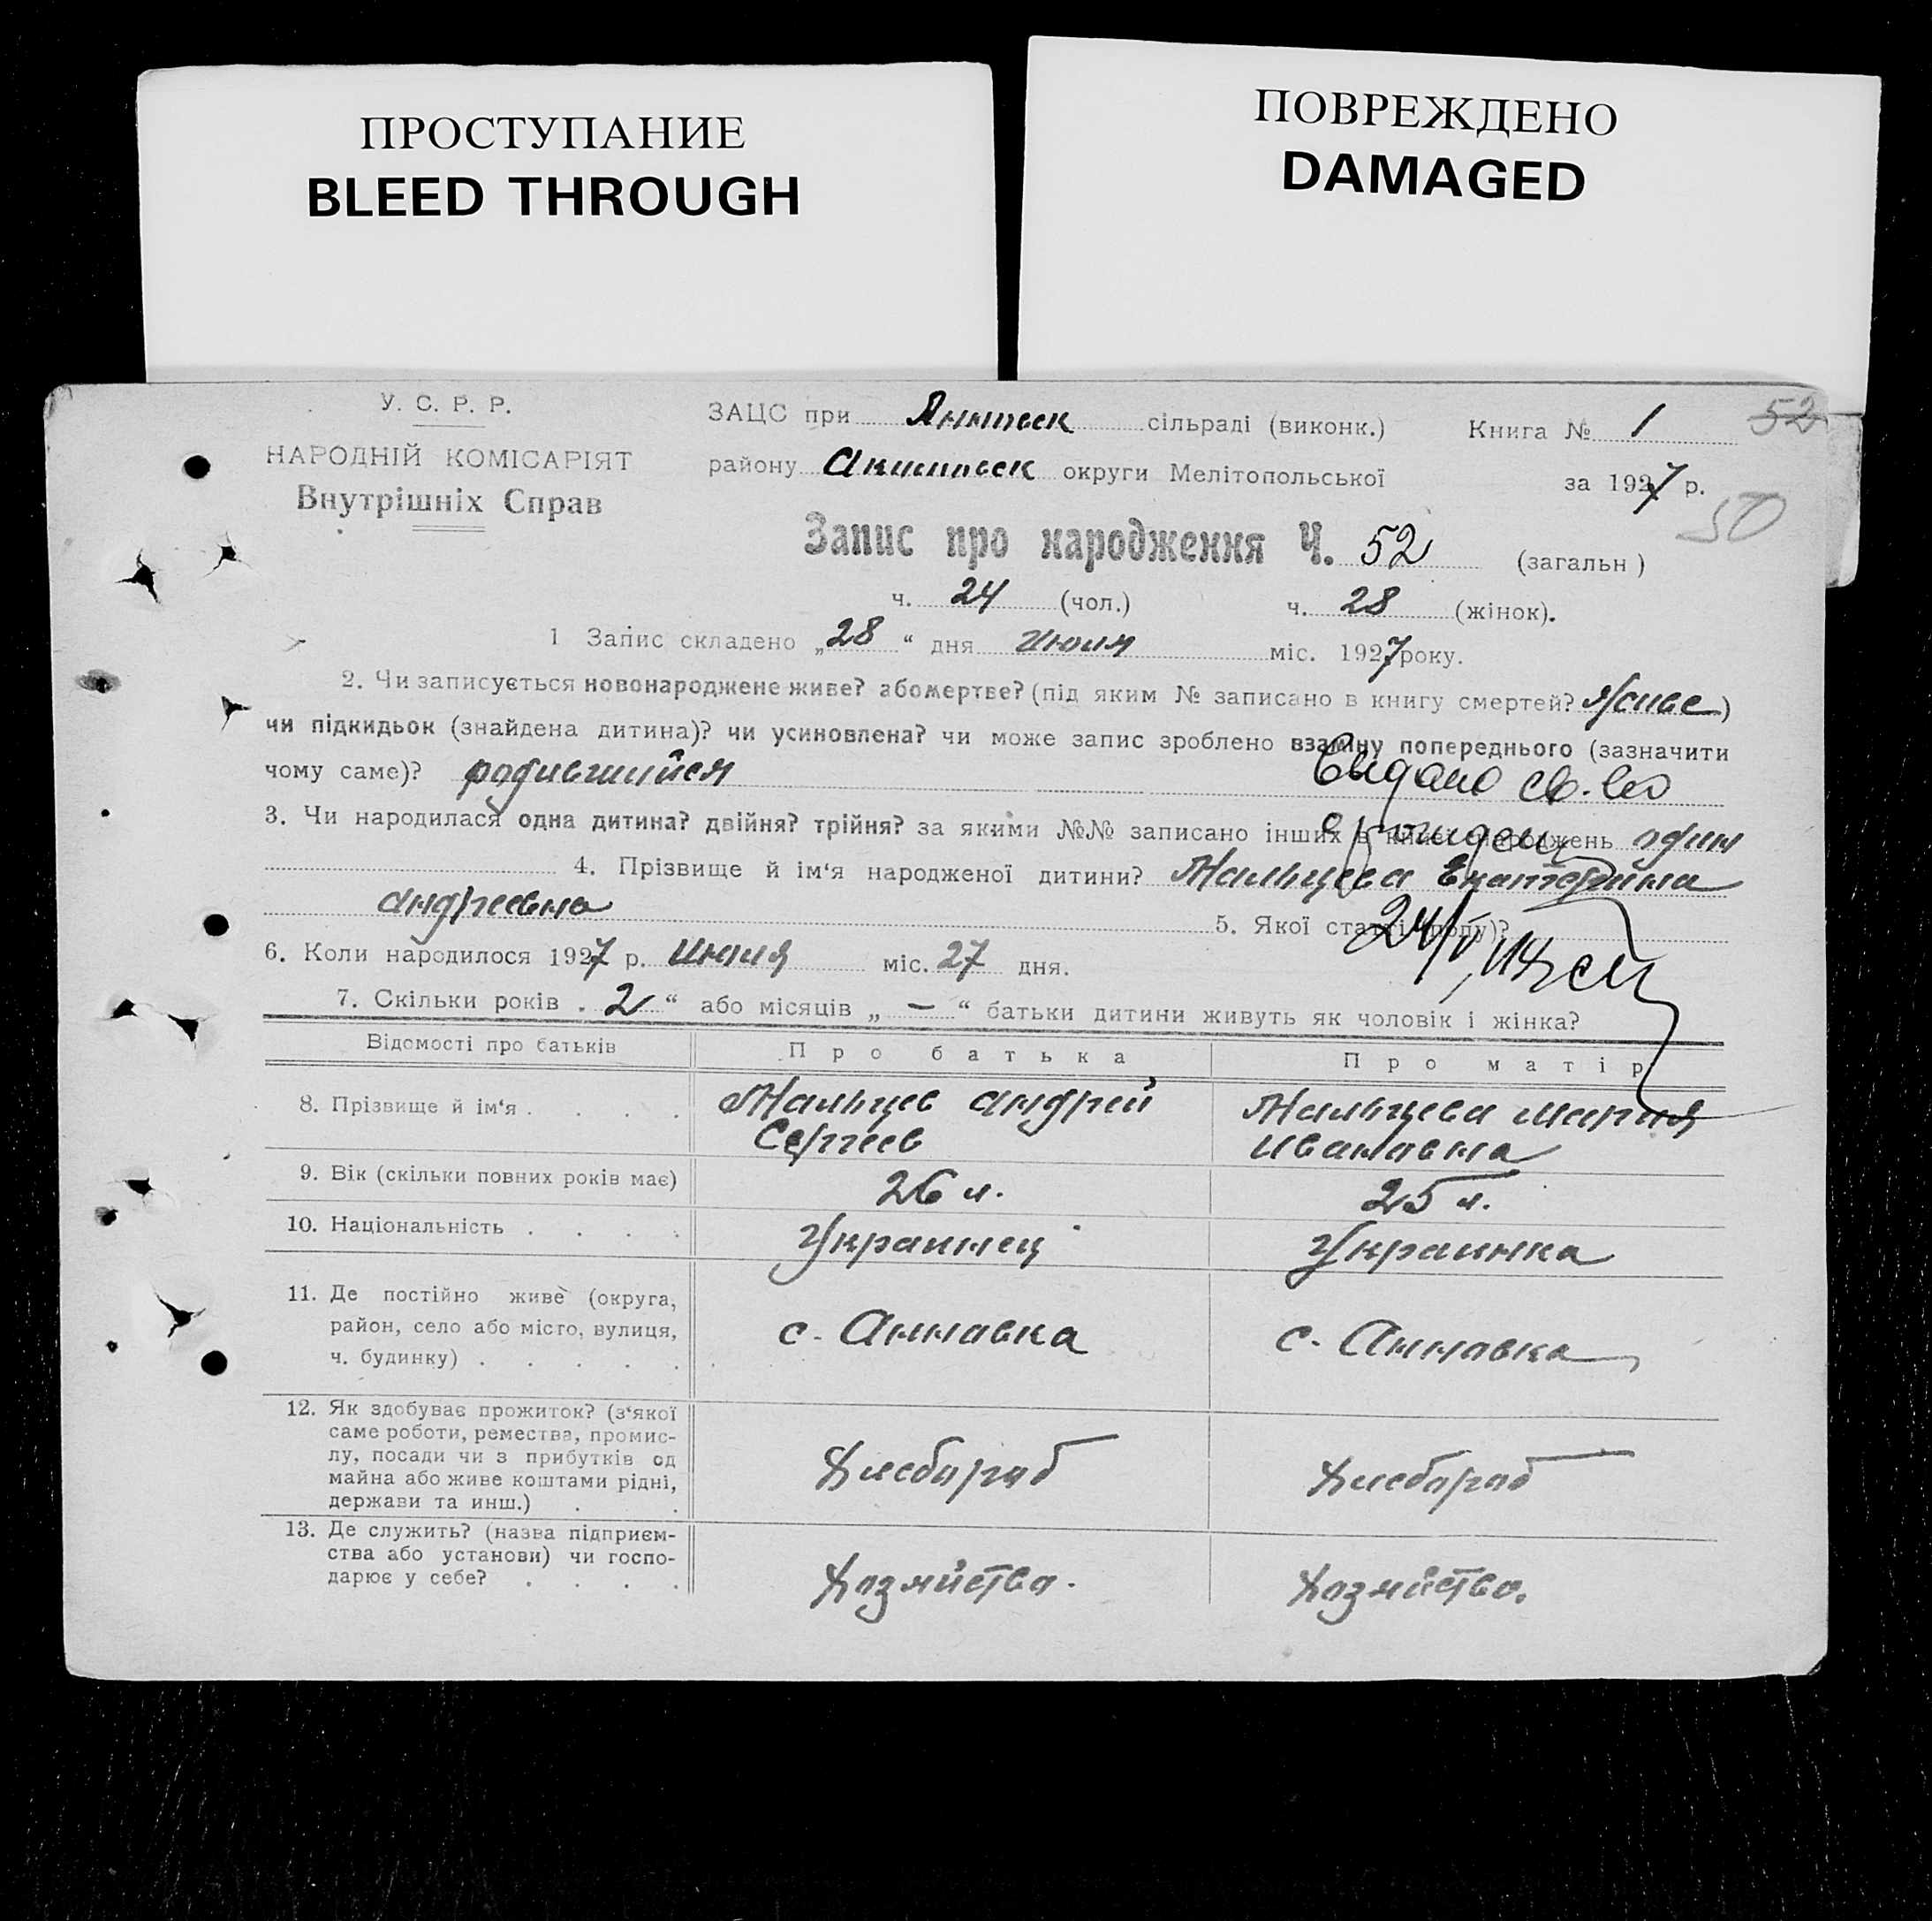 ПРОСТУПАНИЕ
BLEED THROUGH
ПОВРЕЖДЕНО
DAMAGED
У. С. Р. Р.
НАРОДНІЙ КОМІСАРІЯТ
Внутрішніх Справ
ЗАЦС при сільраді (виконк.)
району Акимовск округи Мелітопольської
Книга № 1 52
за 1927 р.
50
Запис про народження Ч. 52 (загальн)
ч. 24 (чол.) ч. 28 (жінок).
1 Запис складено „28“ дня Июля міс. 1927 року.
2. Чи записується новонароджене живе? або мертве? (під яким № записано в книгу смертей? живе)
чи підкидьок (знайдена дитина)? чи усиновлена? чи може запис зроблено взамін попереднього (зазначити
чому саме)? родившийся
Выдано св. во
3. Чи народилася одна дитина? двійня? трійня? за якими №№ записано інших в книзі народжень один
4. Прізвище й ім‘я народженої дитини? Мальцева Екатерина
Андреевна 5. Якої статті (полу)?
6. Коли народилося 1927 р. Июля міс. 27 дня.
7. Скільки років „2“ або місяців „—“ батьки дитини живуть як чоловік і жінка?
Відомості про батьків Про батька Про матір
8. Прізвище й ім‘я . . . . Мальцев Андрей Мальцева Мария
Сергеев Ивановна
9. Вік (скільки повних років має) 26 л. 25 л.
10. Національність . . . . Украинец Украинка
11. Де постійно живе (округа,
район, село або місто, вулиця,
ч. будинку) . . . . . с. Анновка с. Анновка
12. Як здобуває прожиток? (з‘якої
саме роботи, ремества, промис-
лу, посади чи з прибутків од
майна або живе коштами рідні,
держави та инш.) . . Хлебороб Хлебороб
13. Де служить? (назва підприєм-
ства або установи) чи госпо-
дарює у себе? . . . . Хозяйство. Хозяйство.